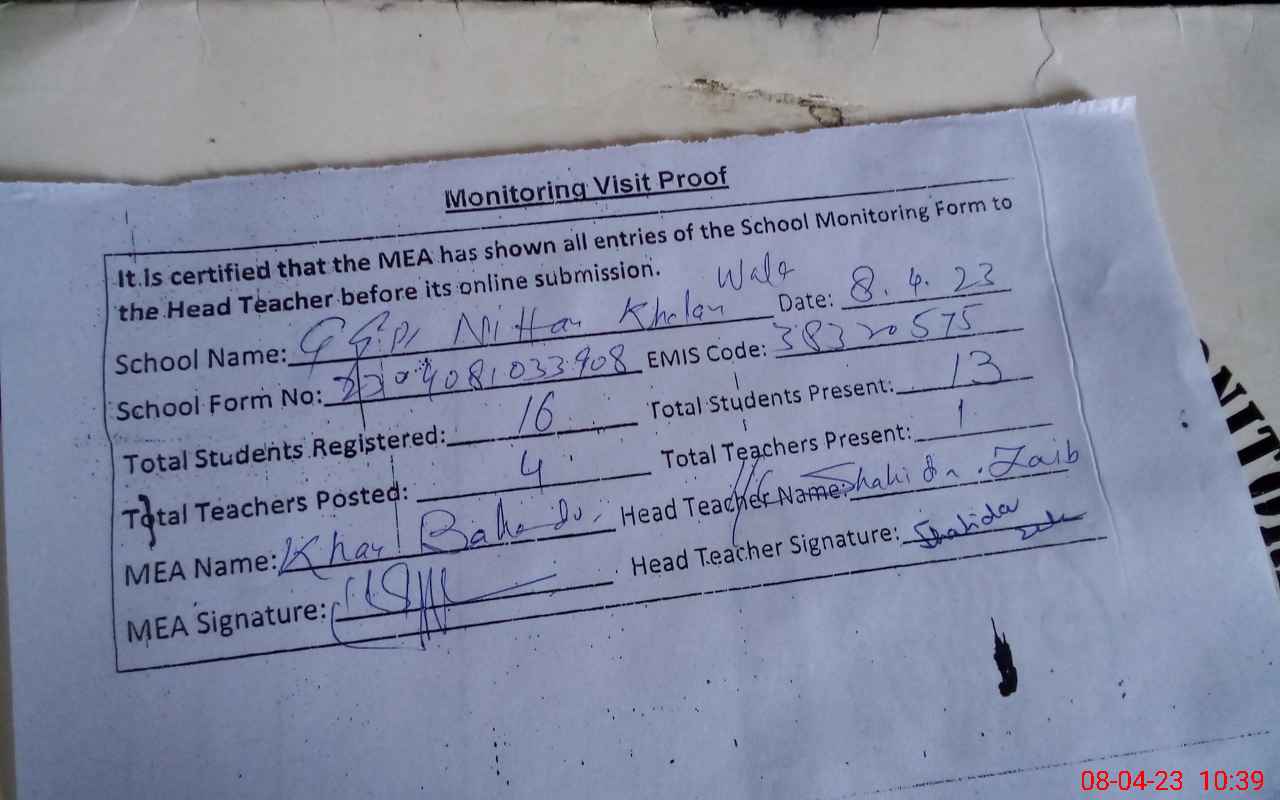 Monitoring Visit Proof
It is certified that the MEA has shown all entries of the School Monitoring Form to
the Head Teacher before its online submission.
School Name: GGPS Nittar Khelan Wala Date: 8.4.23
School Form No: EMIS Code: 38320575
Total Students Registered: 16 Total Students Present: 13
Total Teachers Posted: 4 Total Teachers Present: 1
MEA Name: Khan Head Teacher Name: Shahida Zaib
MEA Signature: Head Teacher Signature: Shahida
08-04-23 10:39